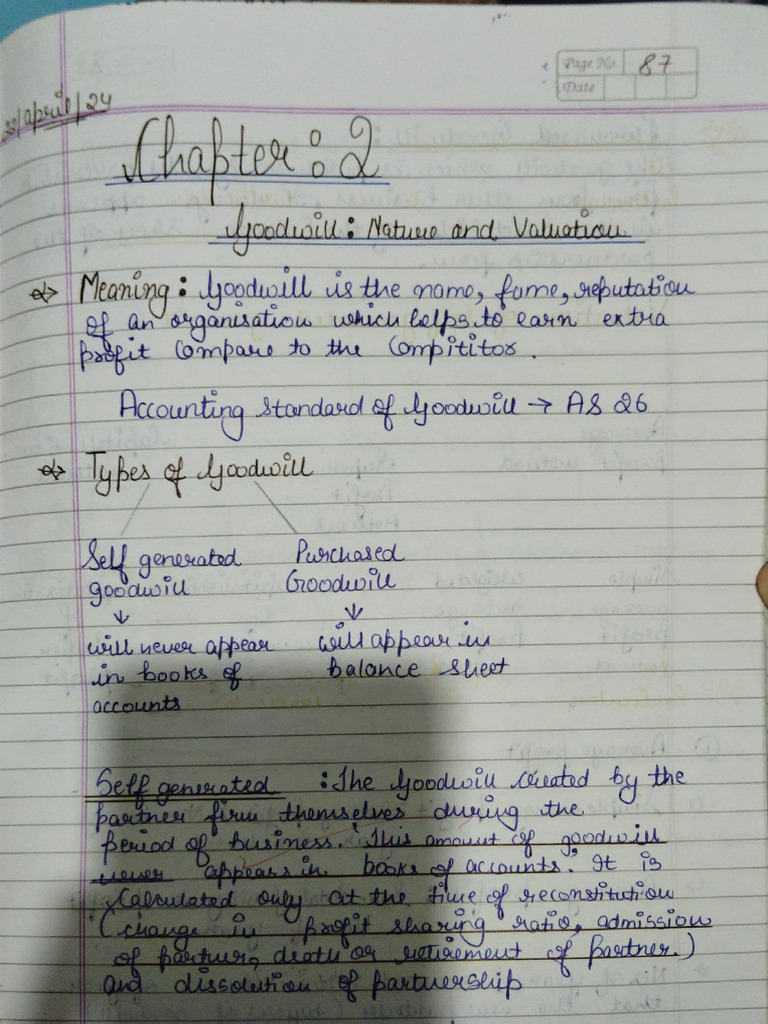 Page No. 87
Date
/april/24
Chapter : 2
Goodwill: Nature and Valuation
Meaning : Goodwill is the name, fame, reputation
of an organisation which helps to earn extra
profit compare to the compititor.
Accounting standard of Goodwill → AS 26
Types of Goodwill
Self generated Purchased
goodwill Goodwill
↓ ↓
will never appear will appear in
in books of balance sheet
accounts
Self generated : The Goodwill created by the
partner firm themselves during the
period of business. This amount of goodwill
never appears in books of accounts. It is
calculated only at the time of reconstitution
(change in profit sharing ratio, admission
of partner, death or retirement of partner.)
and dissolution of partnership